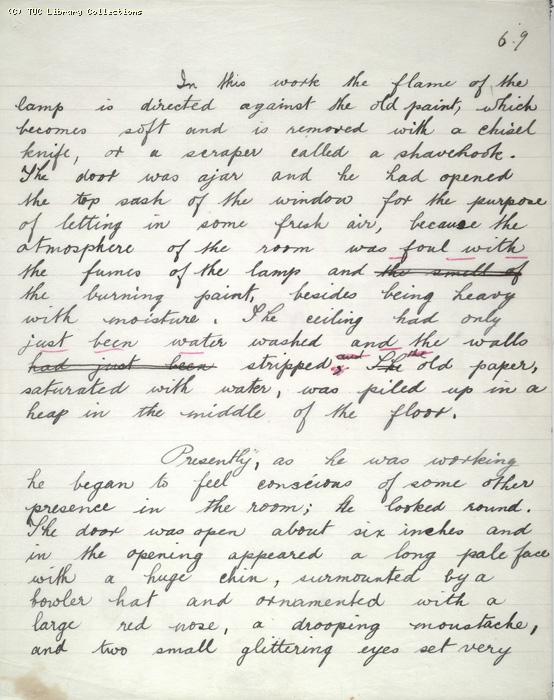 (C) TUC Library Collections
6.9
In this work the flame of the
lamp is directed against the old paint, which
becomes soft and is removed with a chisel
knife, or a scraper called a shavehook.
The door was ajar and he had opened
the top sash of the window for the purpose
of letting in some fresh air, because the
atmosphere of the room was foul with
the fumes of the lamp and the smell of
the burning paint, besides being heavy
with moisture. The ceiling had only
just been water washed and the walls
had just been stripped; and The the old paper,
saturated with water, was piled up in a
heap in the middle of the floor.
Presently, as he was working
he began to feel conscious of some other
presence in the room; He looked round.
The door was open about six inches and
in the opening appeared a long pale face
with a huge chin, surmounted by a
bowler hat and ornamented with a
large red nose, a drooping moustache,
and two small glittering eyes set very